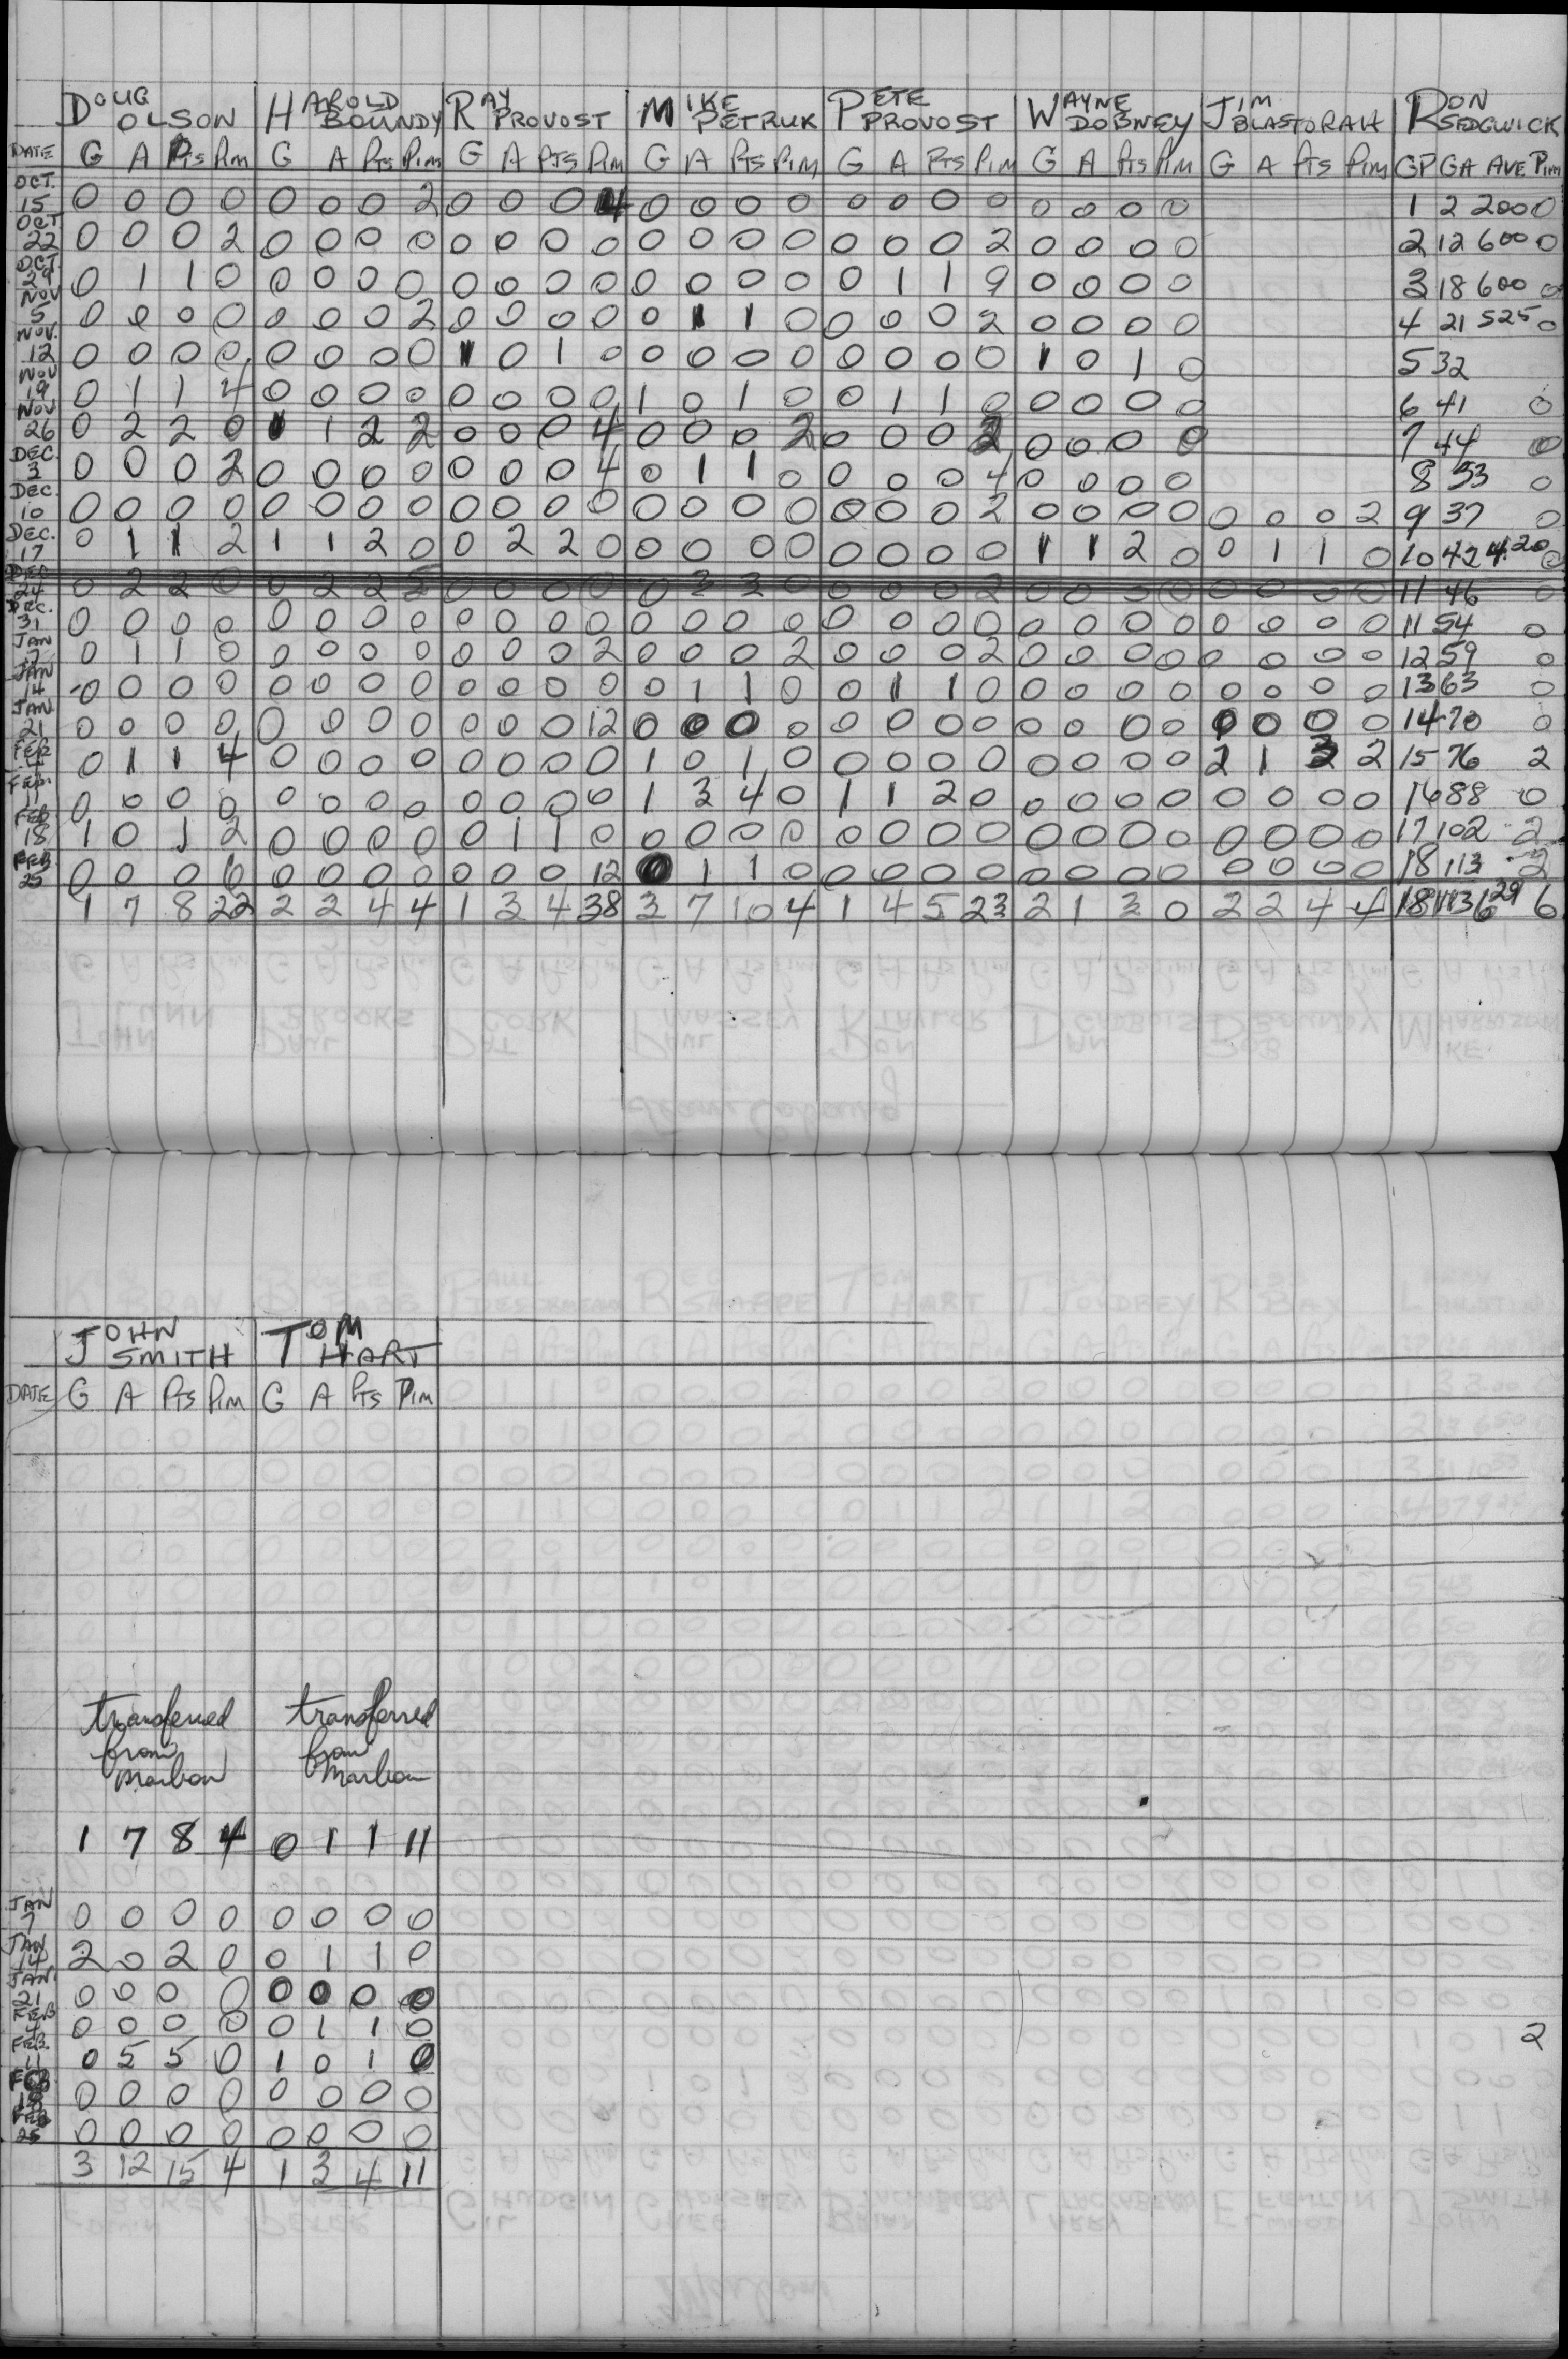 DOUG OLSON HAROLD BOUNDY RAY PROVOST MIKE PETRUK PETE PROVOST WAYNE DOBNEY JIM BLASTORAH RON SEDGWICK
DATE G A Pts Pim G A Pts Pim G A Pts Pim G A Pts Pim G A Pts Pim G A Pts Pim G A Pts Pim GP GA AVE Pim
OCT. 15 0 0 0 0 0 0 0 2 0 0 0 4 0 0 0 0 0 0 0 0 0 0 0 0 1 2 200 0
OCT 22 0 0 0 2 0 0 0 0 0 0 0 0 0 0 0 0 0 0 0 2 0 0 0 0 2 12 600 0
OCT 29 0 1 1 0 0 0 0 0 0 0 0 0 0 0 0 0 0 1 1 9 0 0 0 0 3 18 600 0
NOV 5 0 0 0 0 0 0 0 2 0 0 0 0 0 1 1 0 0 0 0 2 0 0 0 0 4 21 525 0
NOV. 12 0 0 0 0 0 0 0 0 1 0 1 0 0 0 0 0 0 0 0 0 1 0 1 0 5 32
NOV 19 0 1 1 4 0 0 0 0 0 0 0 0 1 0 1 0 0 1 1 0 0 0 0 0 6 41 0
NOV 26 0 2 2 0 1 1 2 2 0 0 0 4 0 0 0 2 0 0 0 2 0 0 0 0 7 44 0
DEC. 3 0 0 0 2 0 0 0 0 0 0 0 4 0 1 1 0 0 0 0 4 0 0 0 0 8 53 0
DEC. 10 0 0 0 0 0 0 0 0 0 0 0 0 0 0 0 0 0 0 0 2 0 0 0 0 0 0 0 2 9 37 0
DEC. 17 0 1 1 2 1 1 2 0 0 2 2 0 0 0 0 0 0 0 0 0 1 1 2 0 0 1 1 0 10 42 4.20 0
DEC 24 0 2 2 0 0 2 2 0 0 0 0 0 3 3 0 0 0 0 2 0 0 0 0 0 0 0 0 11 46 0
DEC. 31 0 0 0 0 0 0 0 0 0 0 0 0 0 0 0 0 0 0 0 0 0 0 0 0 0 0 0 0 11 54 0
JAN 7 0 1 1 0 0 0 0 0 0 0 0 2 0 0 0 2 0 0 0 2 0 0 0 0 0 0 0 0 12 59 0
JAN 14 0 0 0 0 0 0 0 0 0 0 0 0 0 1 1 0 0 1 1 0 0 0 0 0 0 0 0 0 13 63 0
JAN 21 0 0 0 0 0 0 0 0 0 0 0 12 0 0 0 0 0 0 0 0 0 0 0 0 0 0 0 0 14 70 0
FEB 4 0 1 1 4 0 0 0 0 0 0 0 0 1 0 1 0 0 0 0 0 0 0 0 0 2 1 3 2 15 76 2
FEB. 11 0 0 0 0 0 0 0 0 0 0 0 0 1 3 4 0 1 1 2 0 0 0 0 0 0 0 0 0 16 88 0
FEB 18 1 0 1 2 0 0 0 0 0 1 1 0 0 0 0 0 0 0 0 0 0 0 0 0 0 0 0 0 17 102 2
FEB 25 0 0 0 6 0 0 0 0 0 0 0 12 0 1 1 0 0 0 0 0 0 0 0 0 0 0 0 0 18 113 2
1 7 8 22 2 2 4 4 1 3 4 38 3 7 10 4 1 4 5 23 2 1 3 0 2 2 4 4 18 113 6 29 6
JOHN SMITH TOM HART
DATE G A Pts Pim G A Pts Pim
transferred transferred
from from
Marbon Marbon
1 7 8 4 0 1 1 11
JAN 7 0 0 0 0 0 0 0 0
JAN 14 2 0 2 0 0 1 1 0
JAN. 21 0 0 0 0 0 0 0 0
FEB 4 0 0 0 0 0 1 1 0
2
FEB. 11 0 5 5 0 1 0 1 0
FEB 18 0 0 0 0 0 0 0 0
FEB 25 0 0 0 0 0 0 0 0
3 12 15 4 1 3 4 11